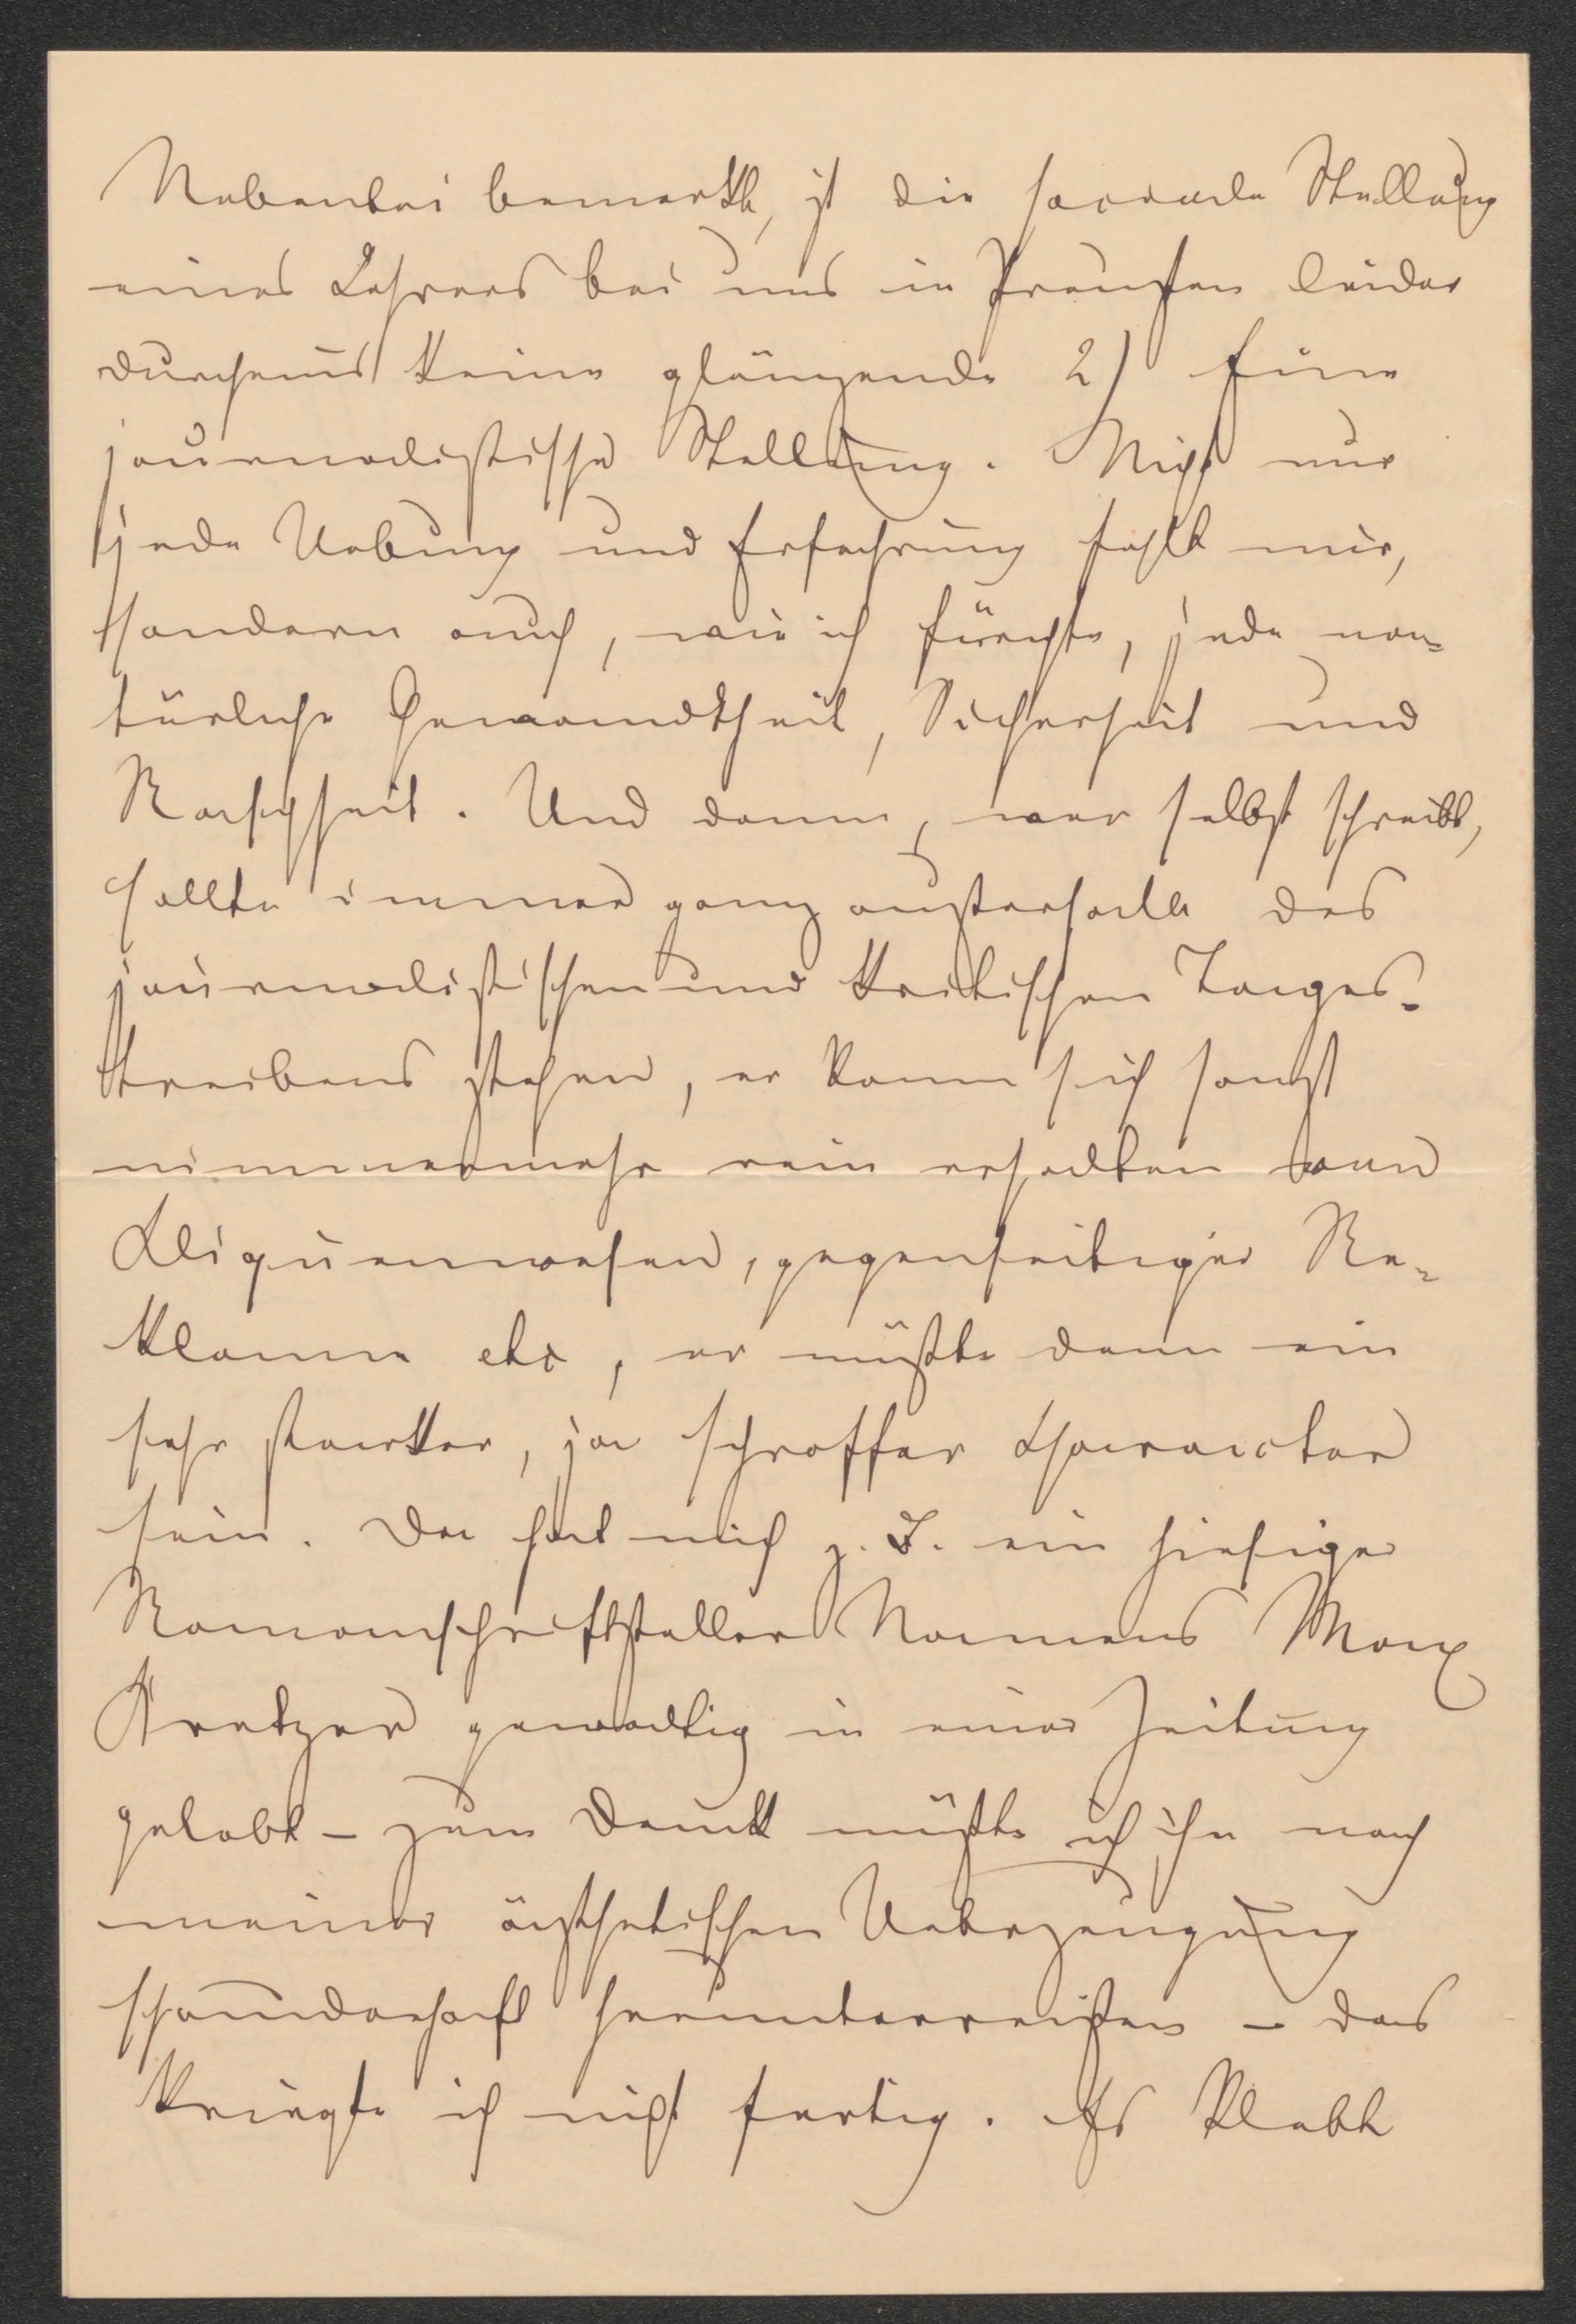 Nebenbei bemerkt, ist die sociale Stellung
eines Lehrers bei uns in Preußen leider
durchaus keine glänzende 2) Eine
journalistische Stellung. Nicht nur
jede Uebung und Erfahrung fehlt mir,
sondern auch, wie ich fürchte, jede na-
türliche Gewandtheit, Sicherheit und
Raschheit. Und dann, wer selbst schreibt,
sollte immer ganz außerhalb des
journalistischen und kritischen Tages-
treibens stehen, er kann sich sonst
nimmermehr rein erhalten von
Cliquenwesen, gegenseitiger Re-
klame etc, er müßte denn ein
sehr starker, ja schroffer Character
sein. Da hat mich z. B. ein hiesiger
Romanschriftsteller Namens Max
Kretzer gewaltig in einer Zeitung
gelobt – zum Dank müßte ich ihn nach
meiner ästhetischen Ueberzeugung
schauderhaft herunterreißen – das
kriegte ich nicht fertig. Es klebt